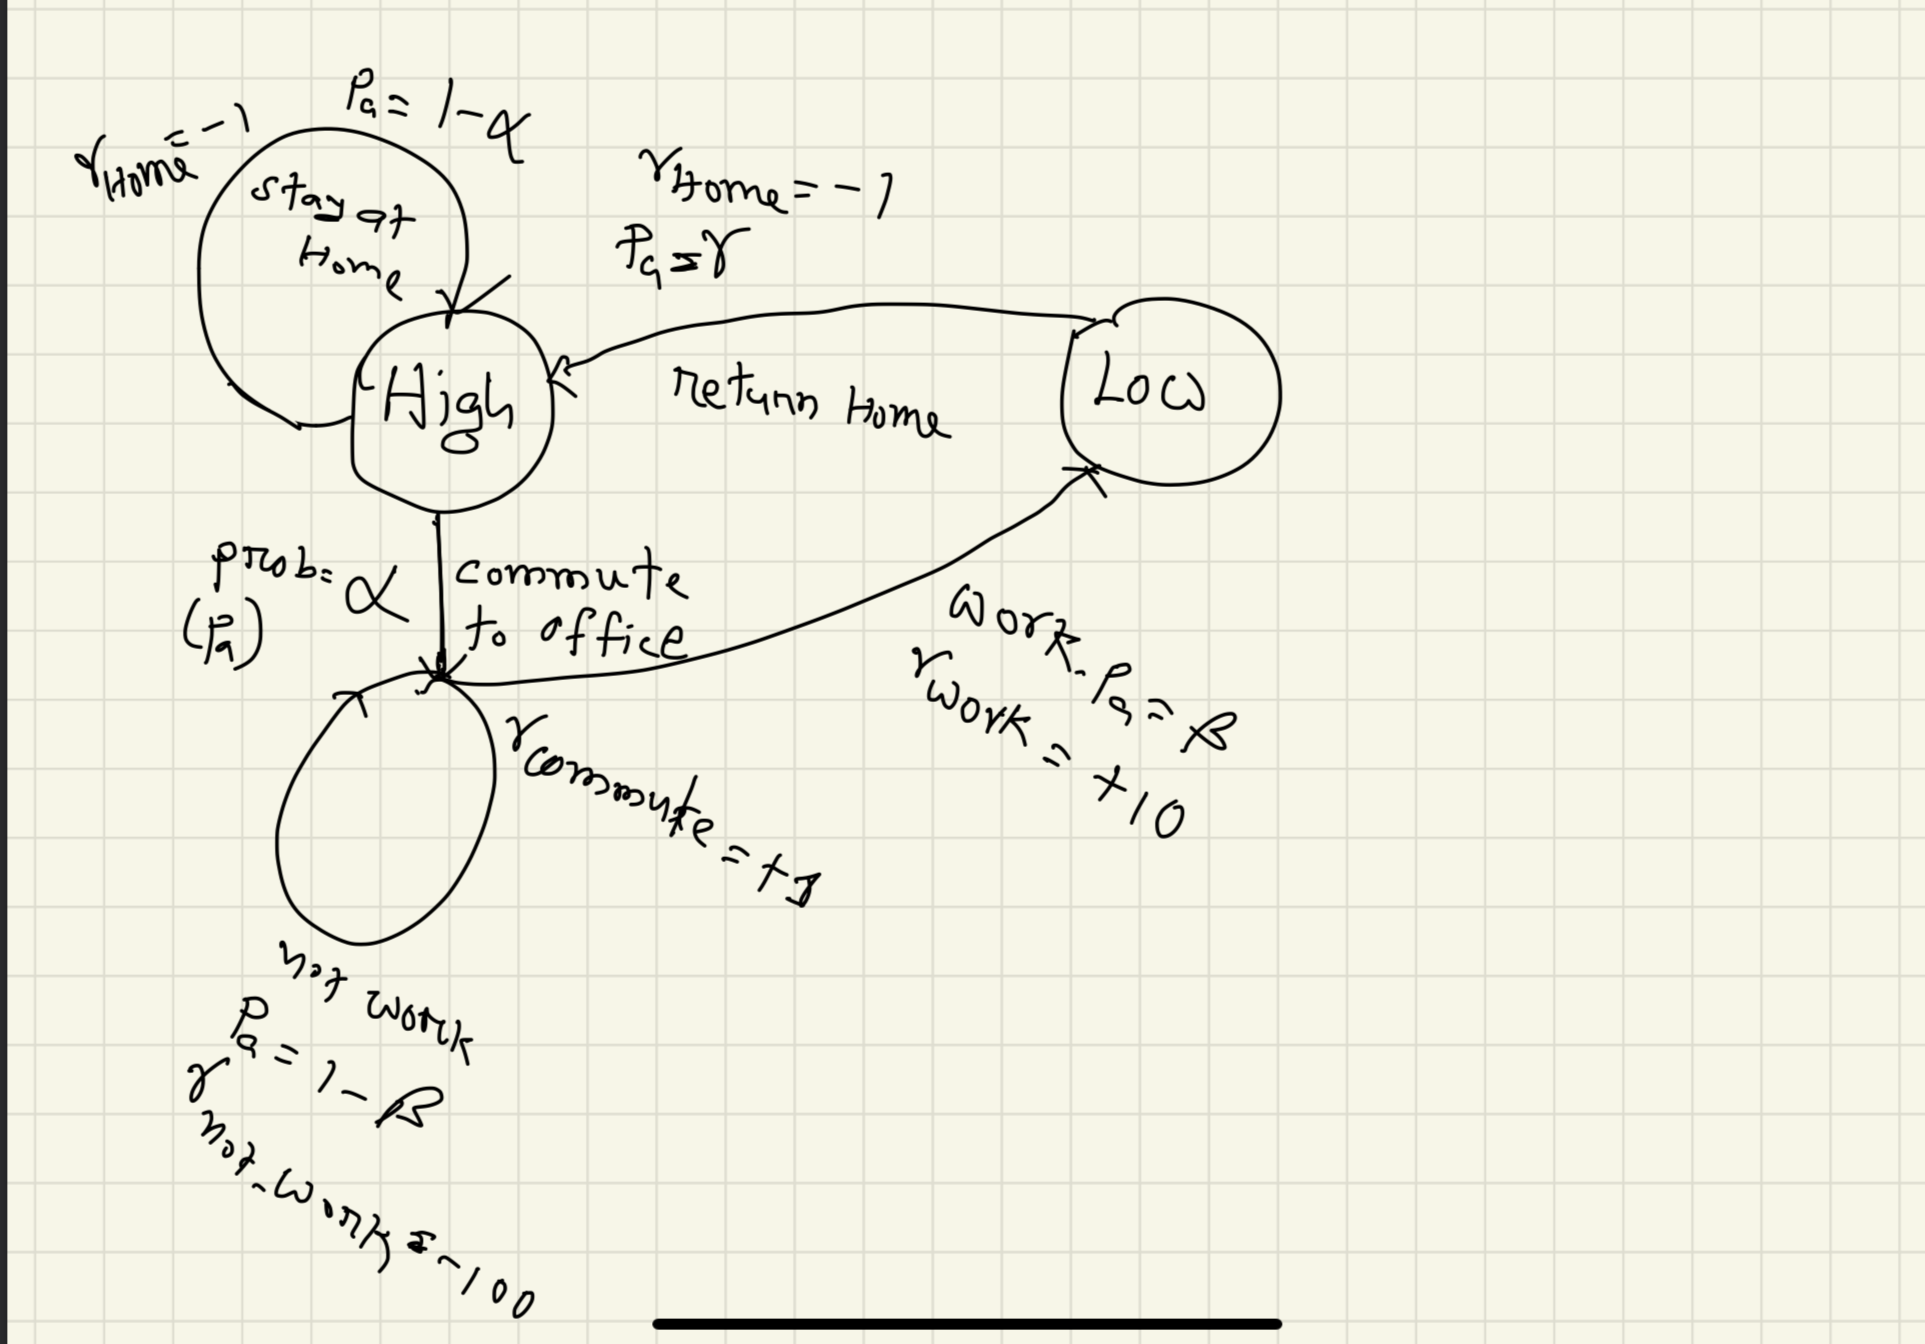 Pa = 1-α
rHome = -1
stay at
Home
rHome = -1
Pa = γ
High
return Home
Low
prob = α
(Pa)
commute
to office
work - Pa = β
rwork = +10
rcommute =
not work
Pa = 1-β
r not-work = -100